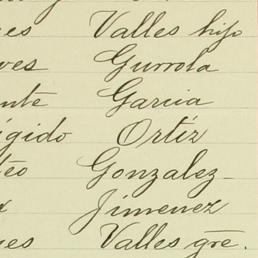 es Valles hijo
ves Gurrola
nte Garcia
ígido Ortíz
teo Gonzalez
Jimenez
es Valles gre.